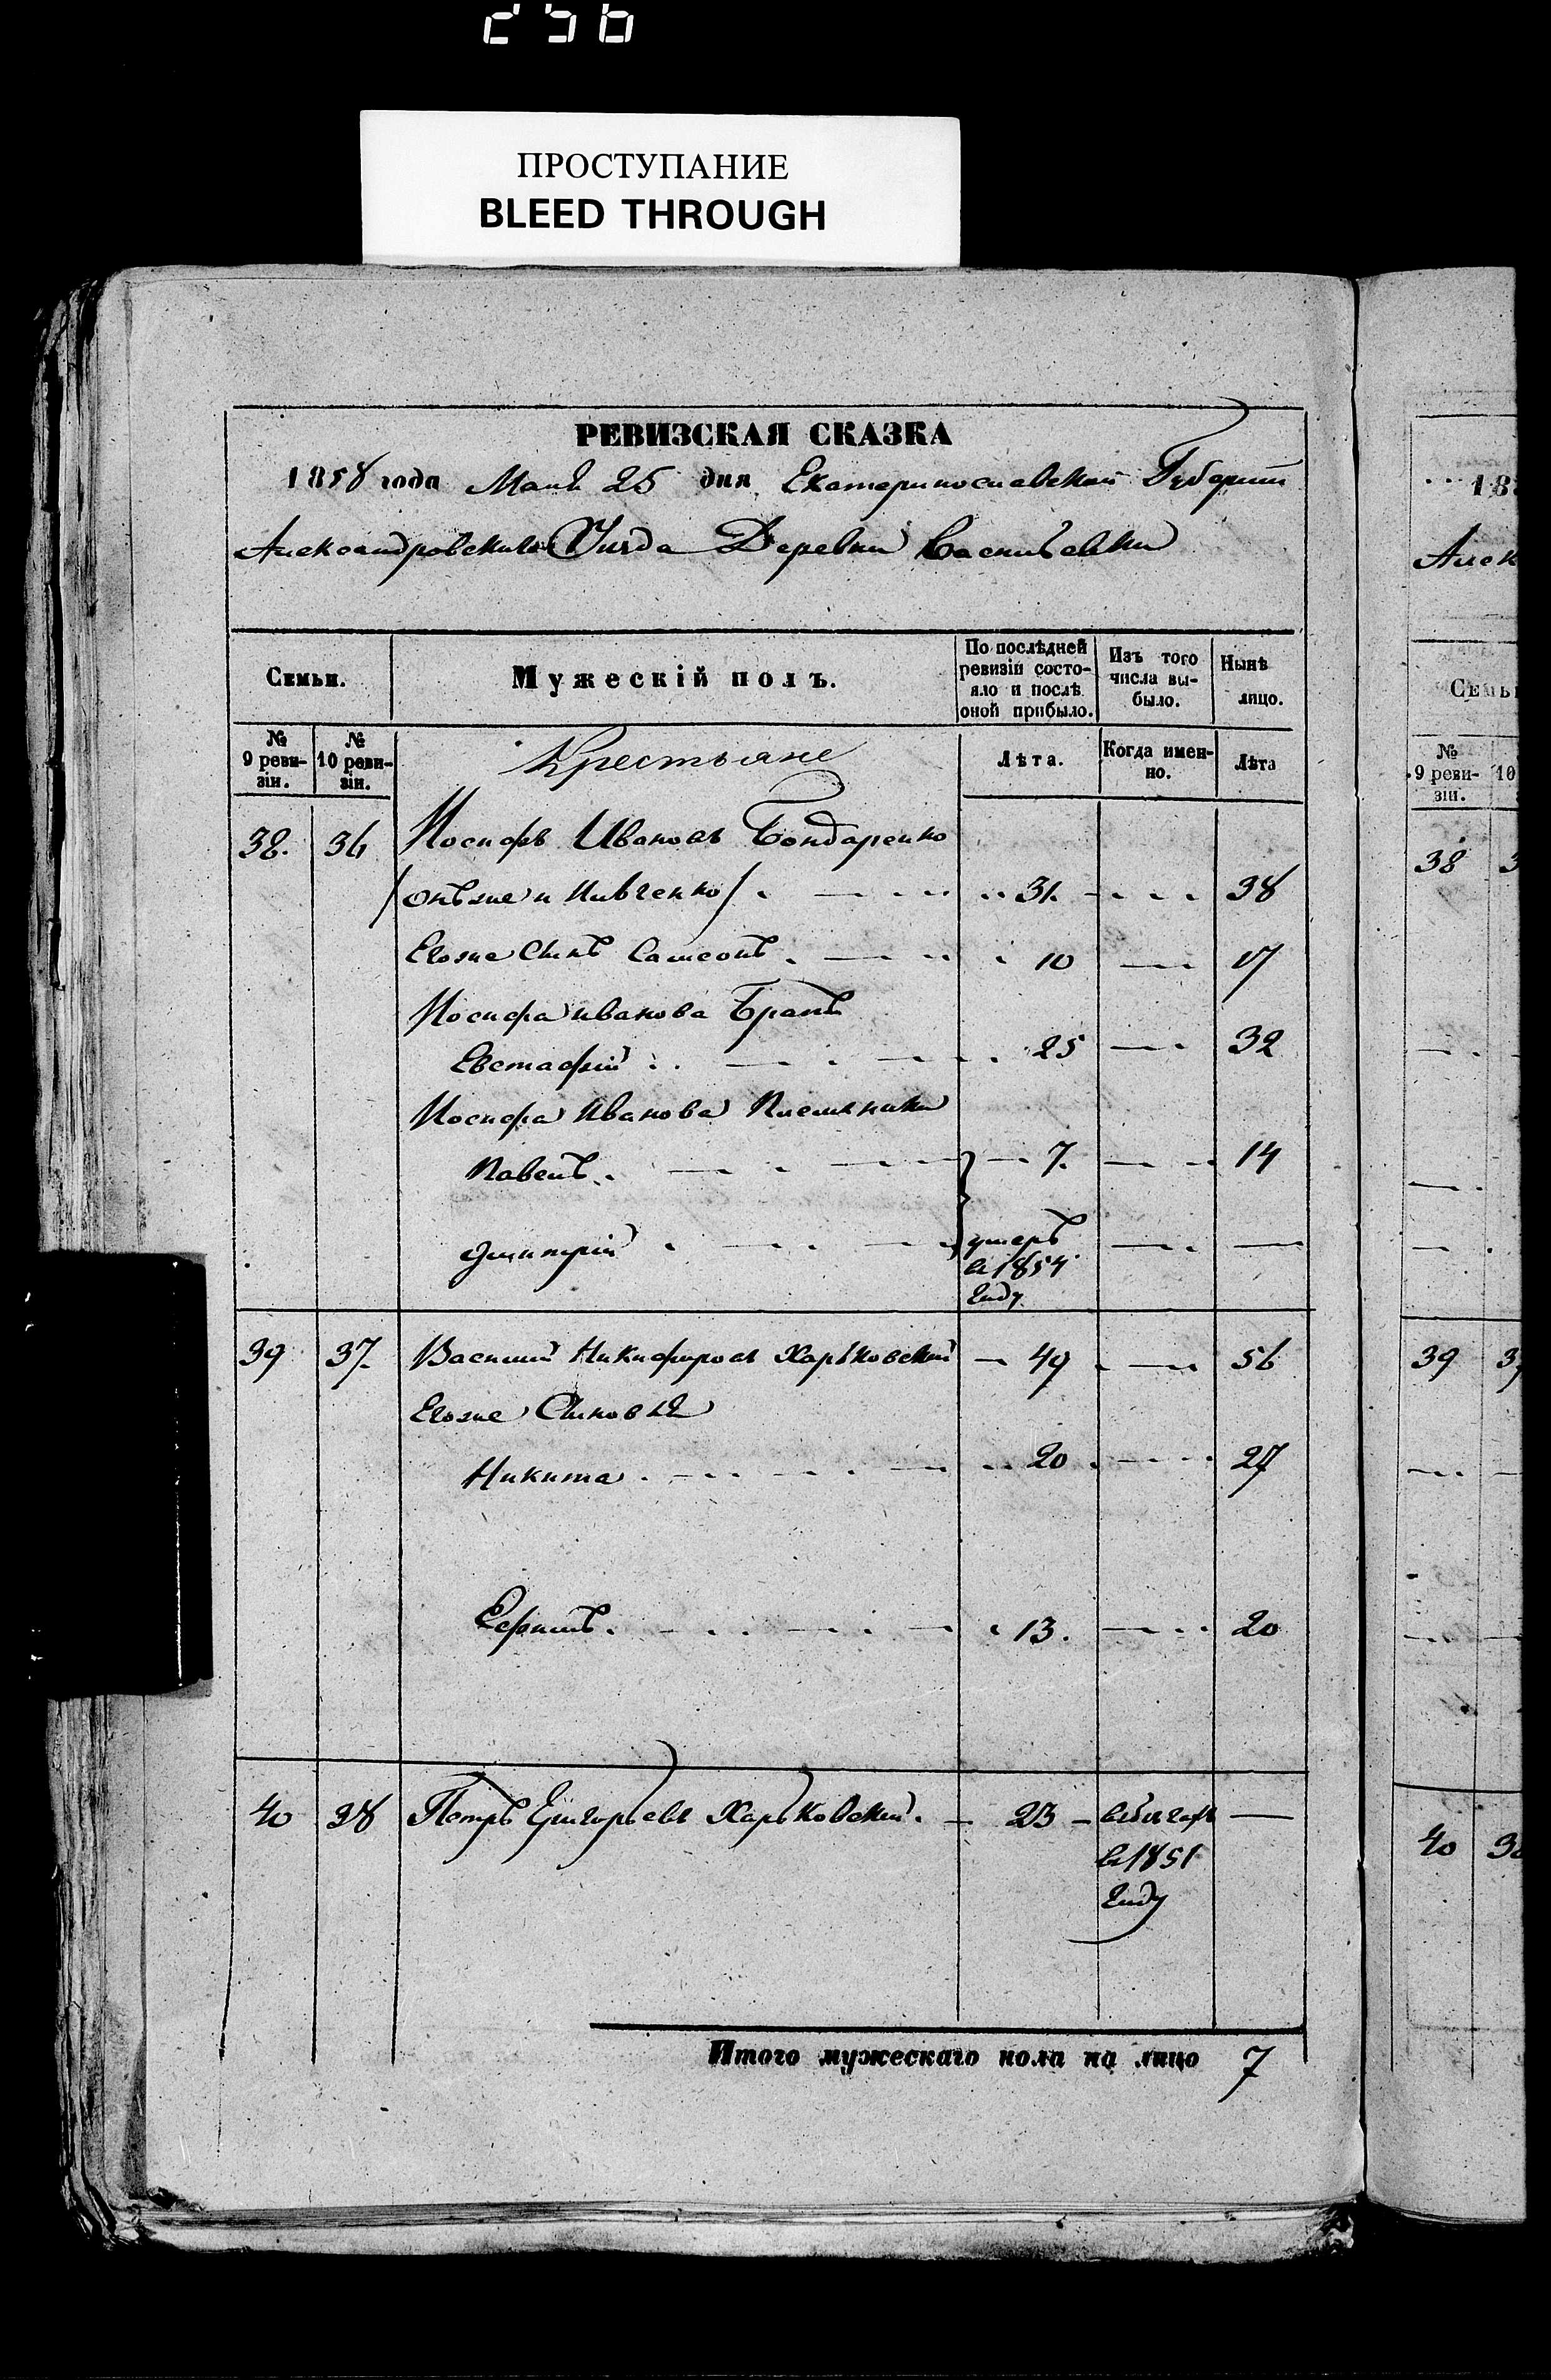 256
ПРОСТУПАНИЕ
BLEED THROUGH
РЕВИЗСКАЯ СКАЗКА
1858 года Маія 25 дня Екатеринославской Губерніи
Александровскаго Уѣзда Деревни Васильевки
Семьи.
Мужескій полъ.
По послѣдней ревизіи состояло и послѣ оной прибыло.
Изъ того числа выбыло.
Нынѣ лицо.
№ 9 ревизіи.
№ 10 ревизіи.
Крестьяне
Лѣта.
Когда именно.
Лѣта
38. 36 Иосифъ Ивановъ Бондаренко
/онъже и Пивченко/ 31. 38
Егоже Сынъ Самсонъ. 10 17
Иосифа иванова Братъ
Евстафій 25 32
Иосифа Иванова Племяники
Павелъ. 7. 14
Дмитрій умеръ
въ 1854
году
39 37. Василий Никифоровъ Харьковский 49 56
Егоже Сыновья
Никита 20 27
Ефимъ. 13. 20
40 38 Петръ Григорьевъ Харьковский. 23
въ 1851
году
Итого мужескаго пола на лицо 7
188
Алек
Семьи
№
9 реви-
зіи.
10
38 3
39 37
40 38